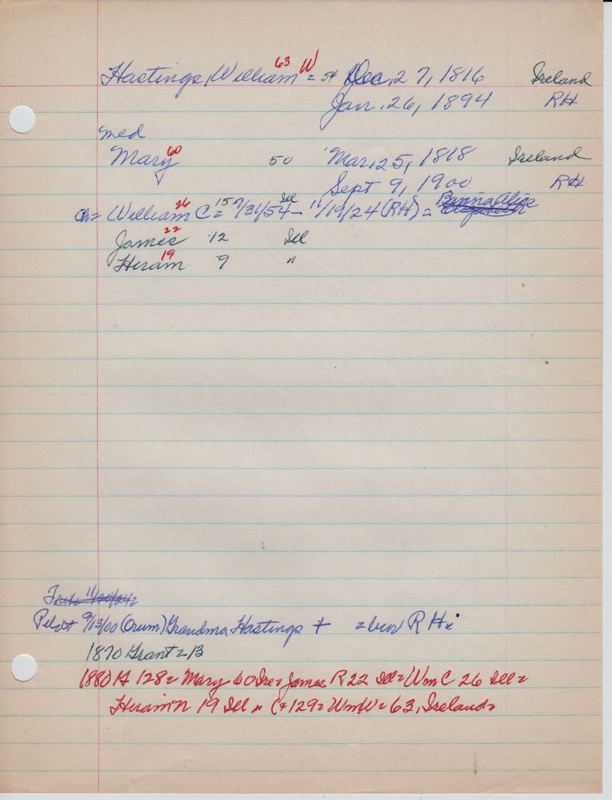 Hastings, William 63 W = 54 Dec. 27, 1816 Ireland
Jan. 26, 1894 RH
med
Mary 60 50 Mar. 25, 1818 Ireland
Sept 9, 1900 RH
ch = William 26 C = 15 = 7/31/54 Ill - 11/19/24 (RH) =
James 22 12 Ill
Hiram 19 9 "
Pilot 9/13/00 (Orum) Grandma Hastings + = bur RH
1870 Grant = 13
1880 G 128 = Mary 60 Ire = James R 22 Ill = Wm C 26 Ill =
Hiram N 19 Ill = G = 129 = Wm W = 63, Ireland =